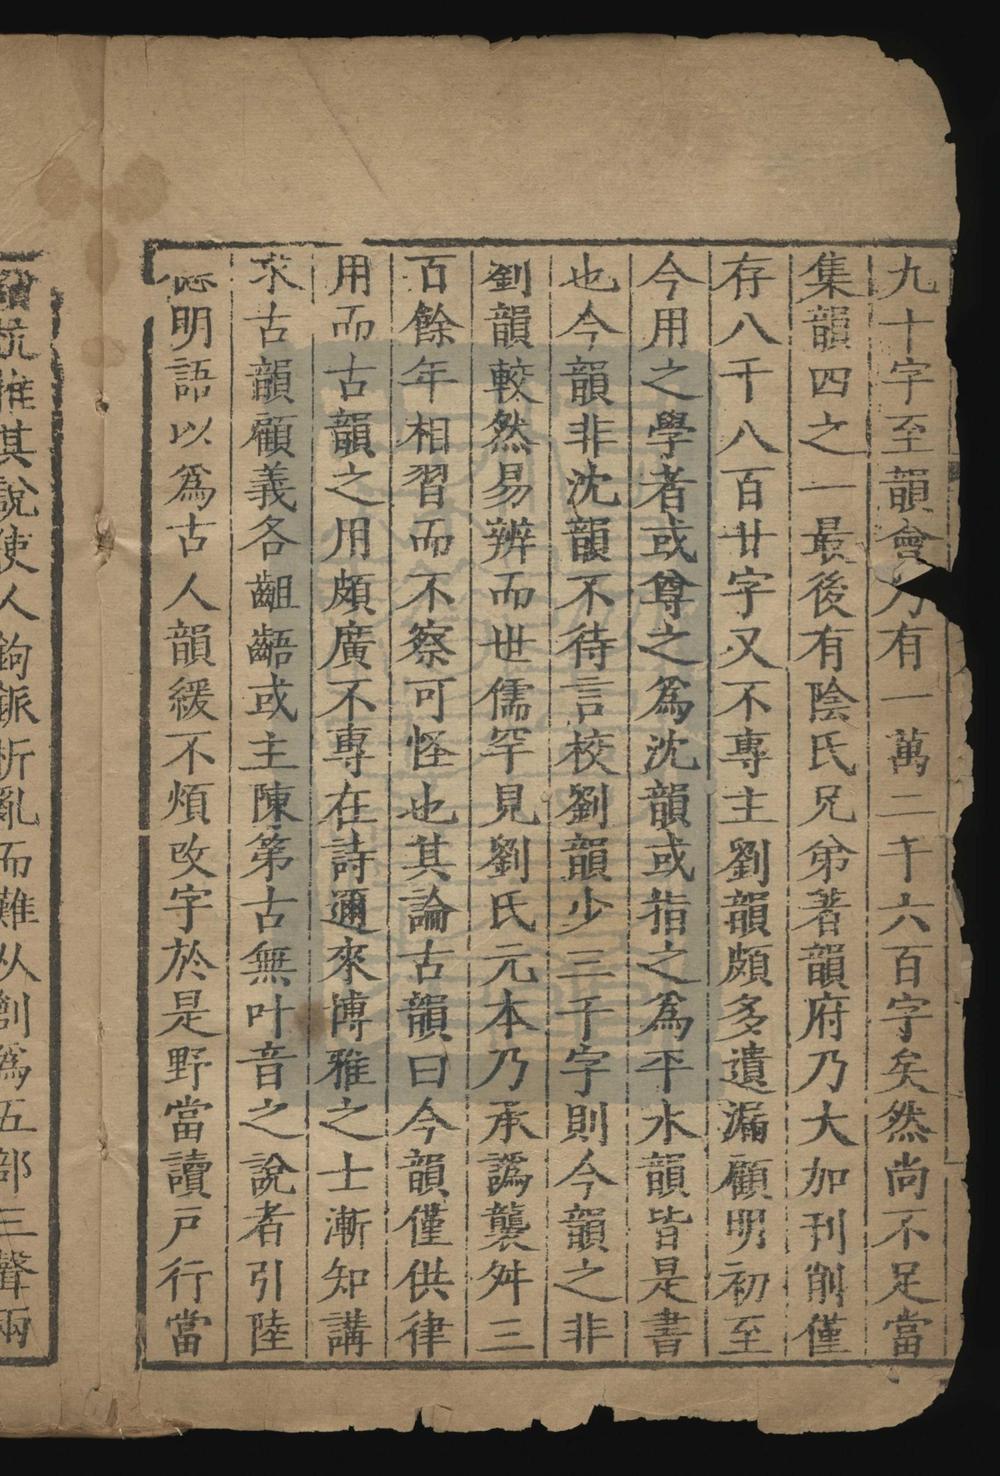 九十字至韻會乃有一萬二千六百字矣然尚不足當
集韻四之一最後有陰氏兄弟著韻府乃大加刊削僅
存八千八百廿字又不專主劉韻頗多遺漏顧明初至
今用之學者或尊之爲沈韻或指之爲平水韻皆是書
也今韻非沈韻不待言校劉韻少三千字則今韻之非
劉韻較然易辨而世儒罕見劉氏元本乃承譌襲舛三
百餘年相習而不察可怪也其論古韻曰今韻僅供律
用而古韻之用頗廣不專在詩邇來博雅之士漸知講
求古韻顧義各齟齬或主陳第古無叶音之說者引陸
德明語以爲古人韻緩不煩改字於是野當讀戸行當
杭推其說使人鉤鈲析亂而難从創爲五部三聲兩